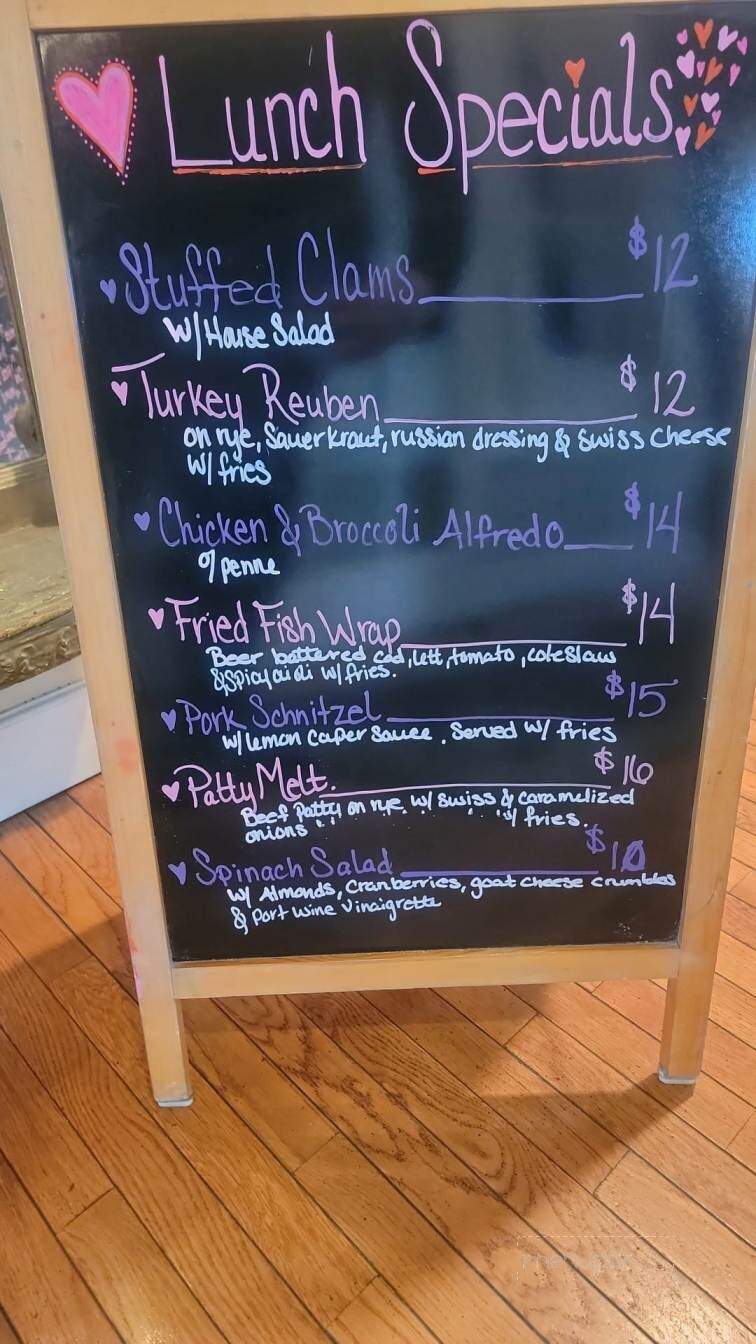 Lunch Specials
Stuffed Clams $12
W/House Salad
Turkey Reuben $12
on rye, Sauerkraut, russian dressing & swiss cheese
W/ fries
Chicken & Broccoli Alfredo $14
o/penne
Fried Fish Wrap $14
Beer battered cod, lett, tomato, coleslaw
& Spicy aioli w/ fries.
Pork Schnitzel $15
W/lemon caper sauce. Served W/ fries
Patty Melt. $16
Beef Patty on rye w/ swiss & caramelized
onions w/ fries.
Spinach Salad $10
W/ Almonds, Cranberries, goat cheese crumbles
& Port Wine Vinaigrette